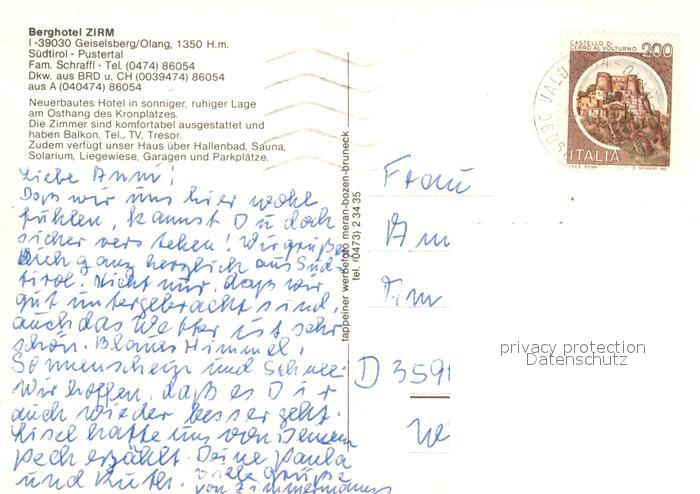 Berghotel ZIRM
I-39030 Geiselsberg/Olang, 1350 H.m.
Südtirol - Pustertal
Fam. Schraffl - Tel. (0474) 86054
Dkw. aus BRD u. CH (0039474) 86054
aus A (040474) 86054
Neuerbautes Hotel in sonniger, ruhiger Lage
am Osthang des Kronplatzes.
Die Zimmer sind komfortabel ausgestattet und
haben Balkon, Tel., TV, Tresor.
Zudem verfügt unser Haus über Hallenbad, Sauna,
Solarium, Liegewiese, Garagen und Parkplätze.
Liebe Anni!
Daß wir uns hier wohl
fühlen, kannst Du doch
sicher verstehen! Wir grüße
Dich ganz herzlich aus Süd-
tirol. Nicht nur, daß wir
gut untergebracht sind,
auch das Wetter ist sehr
schön. Blauer Himmel,
Sonnenschein und Schnee.
Wir hoffen, daß es Dir
auch wieder besser geht.
Lisel hatte uns von Deinem
Pech erzählt. Deine Paula
und Ruth. Viele Grüße
von Zimmermanns
tappeiner werbefoto meran-bozen-bruneck
tel. (0473) 2 34 35
CASTELLO DI
CERRO AL VOLTURNO
200
ITALIA
Frau
An
Am
D 3591
W
privacy protection
Datenschutz